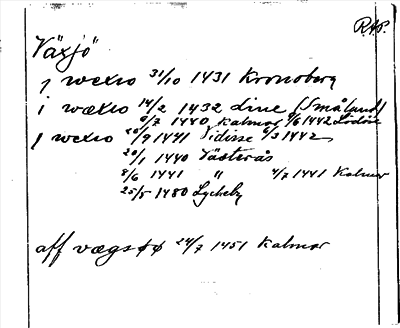 R.A.P.
Växjö
j wexio 31/10 1431 Kronoberg
i wæxio 14/2 1432 dine (Småland)
6/7 1440 Kalmar 9/6 1442 Lödöse
j wexio 20/9 1441 Vidisse 6/3 1442
20/1 1440 Västerås
8/6 1441 " 4/7 1441 Kalmar
25/5 1480 Lyckeby
aff vægsøø 24/7 1451 Kalmar